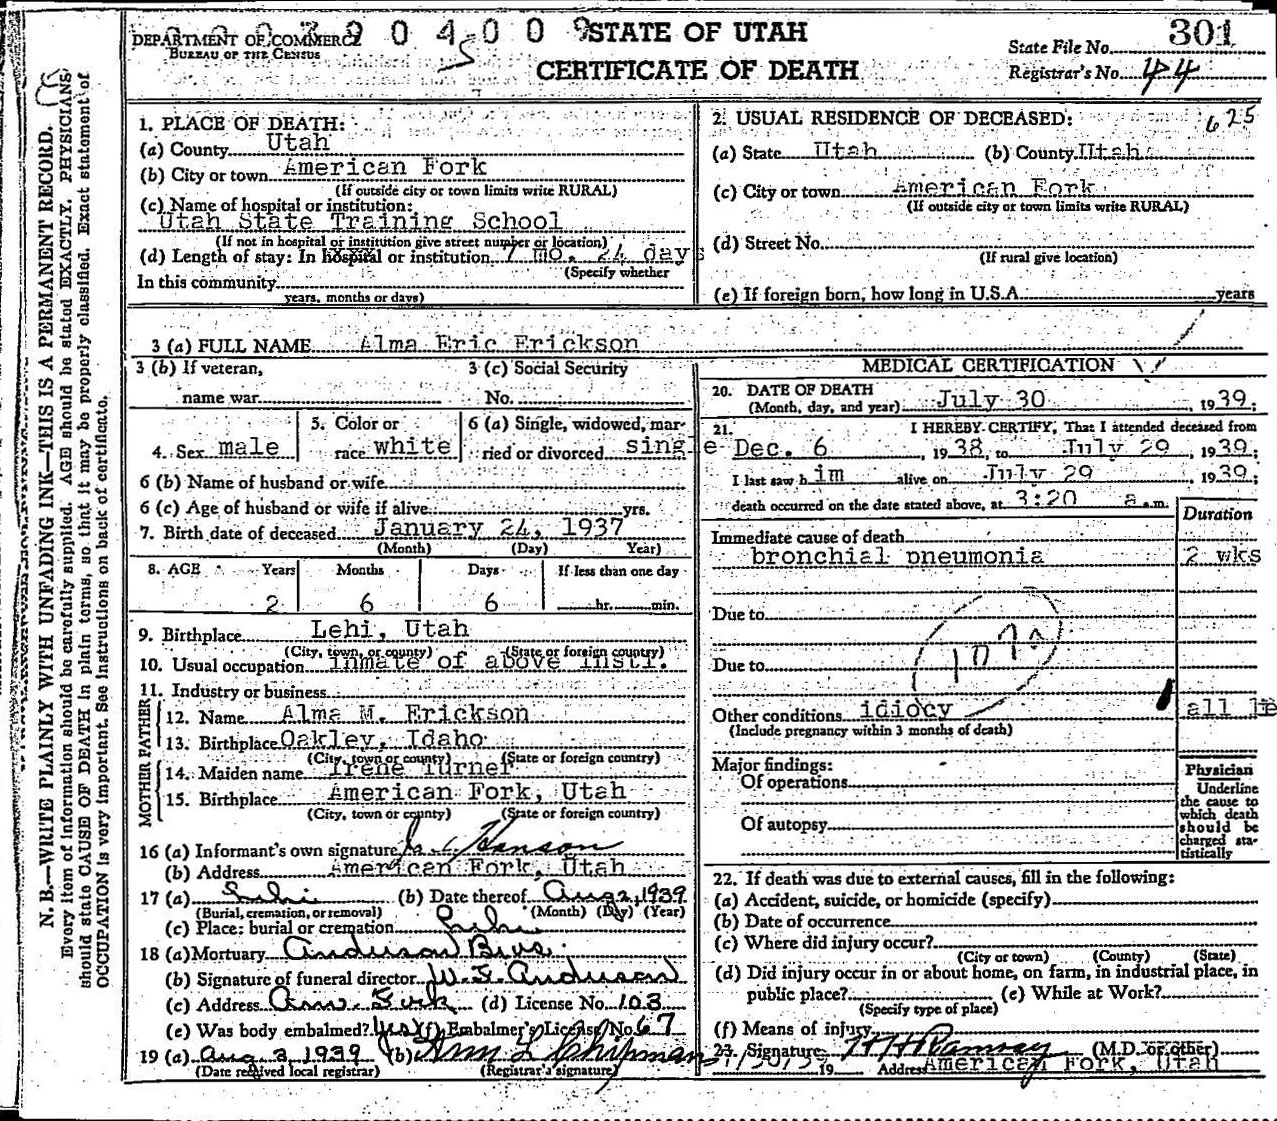 0 0 3 9 0 4 0 0 9
DEPARTMENT OF COMMERCE
BUREAU OF THE CENSUS
STATE OF UTAH
CERTIFICATE OF DEATH
State File No. 301
Registrar's No. 44
N. B.—WRITE PLAINLY WITH UNFADING INK—THIS IS A PERMANENT RECORD.
Every item of information should be carefully supplied. AGE should be stated EXACTLY. PHYSICIANS
should state CAUSE OF DEATH in plain terms, so that it may be properly classified. Exact statement of
OCCUPATION is very important. See instructions on back of certificate.
1. PLACE OF DEATH:
(a) County Utah
(b) City or town American Fork
(If outside city or town limits write RURAL)
(c) Name of hospital or institution:
Utah State Training School
(If not in hospital or institution give street number or location)
(d) Length of stay: In hospital or institution 7 mo. 24 days
(Specify whether
In this community
years, months or days)
2. USUAL RESIDENCE OF DECEASED: 625
(a) State Utah (b) County Utah
(c) City or town American Fork
(If outside city or town limits write RURAL)
(d) Street No.
(If rural give location)
(e) If foreign born, how long in U.S.A. years
3 (a) FULL NAME Alma Eric Erickson
3 (b) If veteran,
name war
3 (c) Social Security
No.
4. Sex male
5. Color or
race white
6 (a) Single, widowed, mar-
ried or divorced single
6 (b) Name of husband or wife
6 (c) Age of husband or wife if alive yrs.
7. Birth date of deceased January 24, 1937
(Month) (Day) Year)
8. AGE Years Months Days If less than one day
2 6 6 hr. min.
9. Birthplace Lehi, Utah
(City, town, or county) (State or foreign country)
10. Usual occupation inmate of above insti.
11. Industry or business
FATHER
12. Name Alma M. Erickson
13. Birthplace Oakley, Idaho
(City, town or county) (State or foreign country)
MOTHER
14. Maiden name Irene Turner
15. Birthplace American Fork, Utah
(City, town or county) (State or foreign country)
16 (a) Informant's own signature Hanson
(b) Address American Fork, Utah
17 (a) Lehi (b) Date thereof Aug 2, 1939
(Burial, cremation, or removal) (Month) (Day) (Year)
(c) Place: burial or cremation Lehi
18 (a) Mortuary Anderson Bros.
(b) Signature of funeral director W. S. Anderson
(c) Address Am. Fork (d) License No. 103
(e) Was body embalmed? Yes (f) Embalmer's License No. 67
19 (a) Aug 3, 1939 (b) Chipman
(Date received local registrar) (Registrar's signature)
MEDICAL CERTIFICATION
20. DATE OF DEATH
(Month, day, and year) July 30, 1939;
21. I HEREBY CERTIFY, That I attended deceased from
Dec. 6, 1938, to July 29, 1939;
I last saw him alive on July 29, 1939;
death occurred on the date stated above, at 3:20 a.m.
Duration
Immediate cause of death
bronchial pneumonia 2 wks
Due to
107a
Due to
Other conditions idiocy all life
(Include pregnancy within 3 months of death)
Major findings:
Of operations
Of autopsy
Physician
Underline
the cause to
which death
should be
charged sta-
tistically
22. If death was due to external causes, fill in the following:
(a) Accident, suicide, or homicide (specify)
(b) Date of occurrence
(c) Where did injury occur?
(City or town) (County) (State)
(d) Did injury occur in or about home, on farm, in industrial place, in
public place? (e) While at Work?
(Specify type of place)
(f) Means of injury
23. Signature H H Ramsay (M.D. or other)
19 Address American Fork, Utah